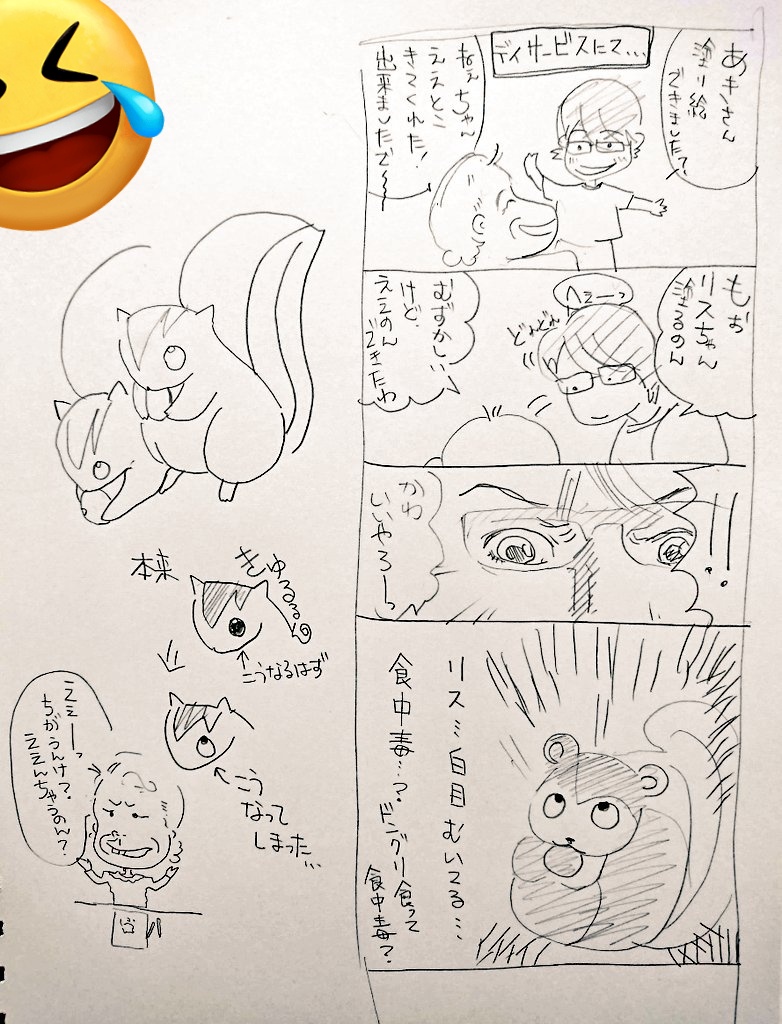 デイサービスにて…
あきさん
塗り絵
できました?
ねぇちゃん
ええとこ
きてくれた!
出来ましたで〜
もぉ
リスちゃん
塗るのん
へぇーっ
どれどれ
むずかしい
けど、
ええのん
できたわ
!!
かわ
いいやろーっ
リス…白目むいてる…
食中毒…?
ドングリ食って
食中毒?
本来
きゅるるる
こうなるはず
こう
なって
しまった…
ええーっ
ちがうんけ?
ええんちゃうのん?